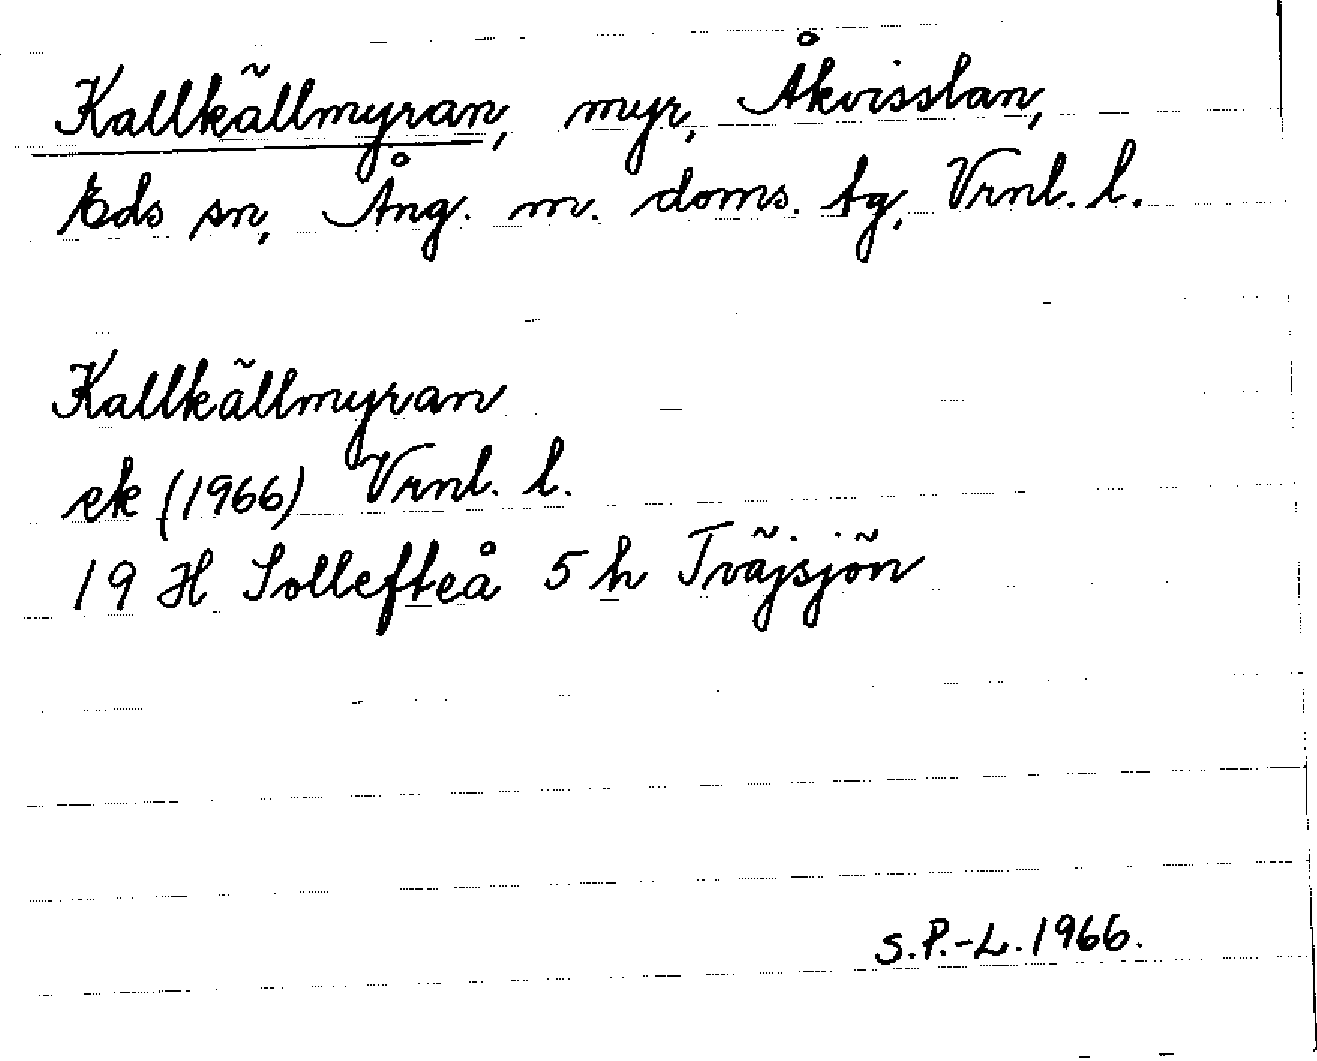 Kallkällmyran, myr, Åkvisslan,
Eds sn, Ång. m. doms. tg, Vrnl. l.
Kallkällmyran
ek (1966) Vrnl. l.
19 H Sollefteå 5 h Tväjsjön
S.P.-L. 1966.